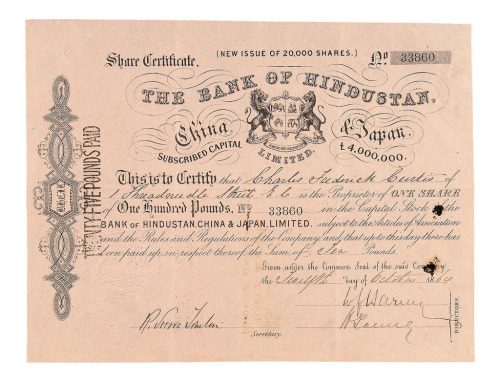 (NEW ISSUE OF 20,000 SHARES.)
Share Certificate. No 33860
THE BANK OF HINDUSTAN,
China & Japan.
SUBSCRIBED CAPITAL £4,000,000.
LIMITED.
TWENTY FIVE POUNDS PAID
This is to Certify that Charles Frederick Curtis of
1 Threadneedle Street E.C. is the Proprietor of ONE SHARE
of One Hundred Pounds, No 33860 in the Capital Stock of the
BANK OF HINDUSTAN, CHINA & JAPAN, LIMITED. subject to the Articles of Association
and the Rules and Regulations of the Company and that up to this day there has
been paid up in respect thereof the Sum of Ten Pounds.
Given under the Common Seal of the said Company,
the Twelfth day of October 1864
DIRECTORS.
Secretary.